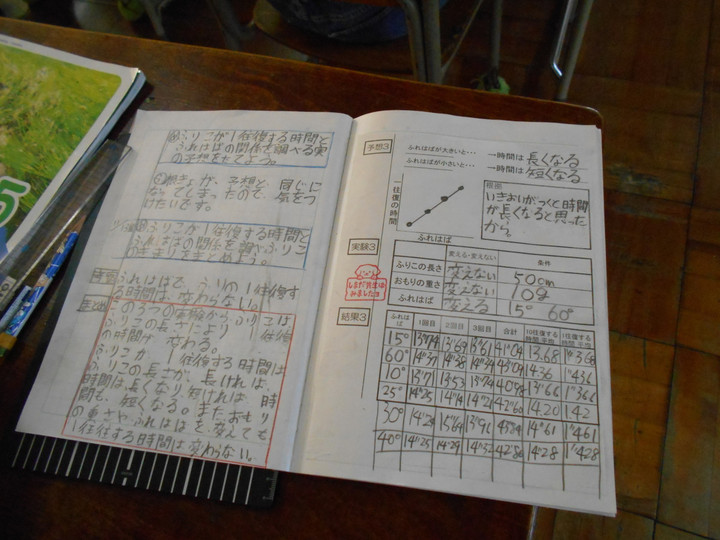 ふりこが1往復する時間と
ふれはばの関係を調べる実
の予想をたてよう。
が、予想と、同じに
なってしまったので、気をつ
けたいです。
ふりこが1往復する時間と
ふれはばの関係を調べ、ふりこ
のきまりをまとめよう。
ふれはばで、ふりこの1往復す
る時間は、変わらない。
まとめ
このうつの実験から、ふりこは
ふりこの長さにより1往復
の時間が変わる。
ふりこが1往復する時間は
ふりこの長さが、長ければ、
時間は長くなり短ければ、時
間も、短くなる。またおもり
の重さやふれはばを変えても
1往復する時間は変わらない。
5
予想3
ふれはばが大きいと… →時間は長くなる
ふれはばが小さいと… →時間は短くなる
一往復の時間
ふれはば
理由
いきおいがつくと時間
が長くなると思った
から。
実験3
変える・変えない 条件
ふりこの長さ 変えない 50cm
おもりの重さ 変えない 10g
ふれはば 変える 15° 60°
結果3
ふれはば 1回目 2回目 3回目 合計 10往復する時間・平均 1往復する時間・平均
15° 13"74 13"69 13"61 41"04 13.68 1"368
60° 14"37 14"38 14"34 43"09 14.36 1"436
10° 13"71 13"53 13"74 40"98 13"66 1"366
25° 14"25 14"14 14"21 42"60 14.20 1"42
30° 14"24 14"61 1"461
40° 14"25 14"29 14"32 42"86 14"28 1"428